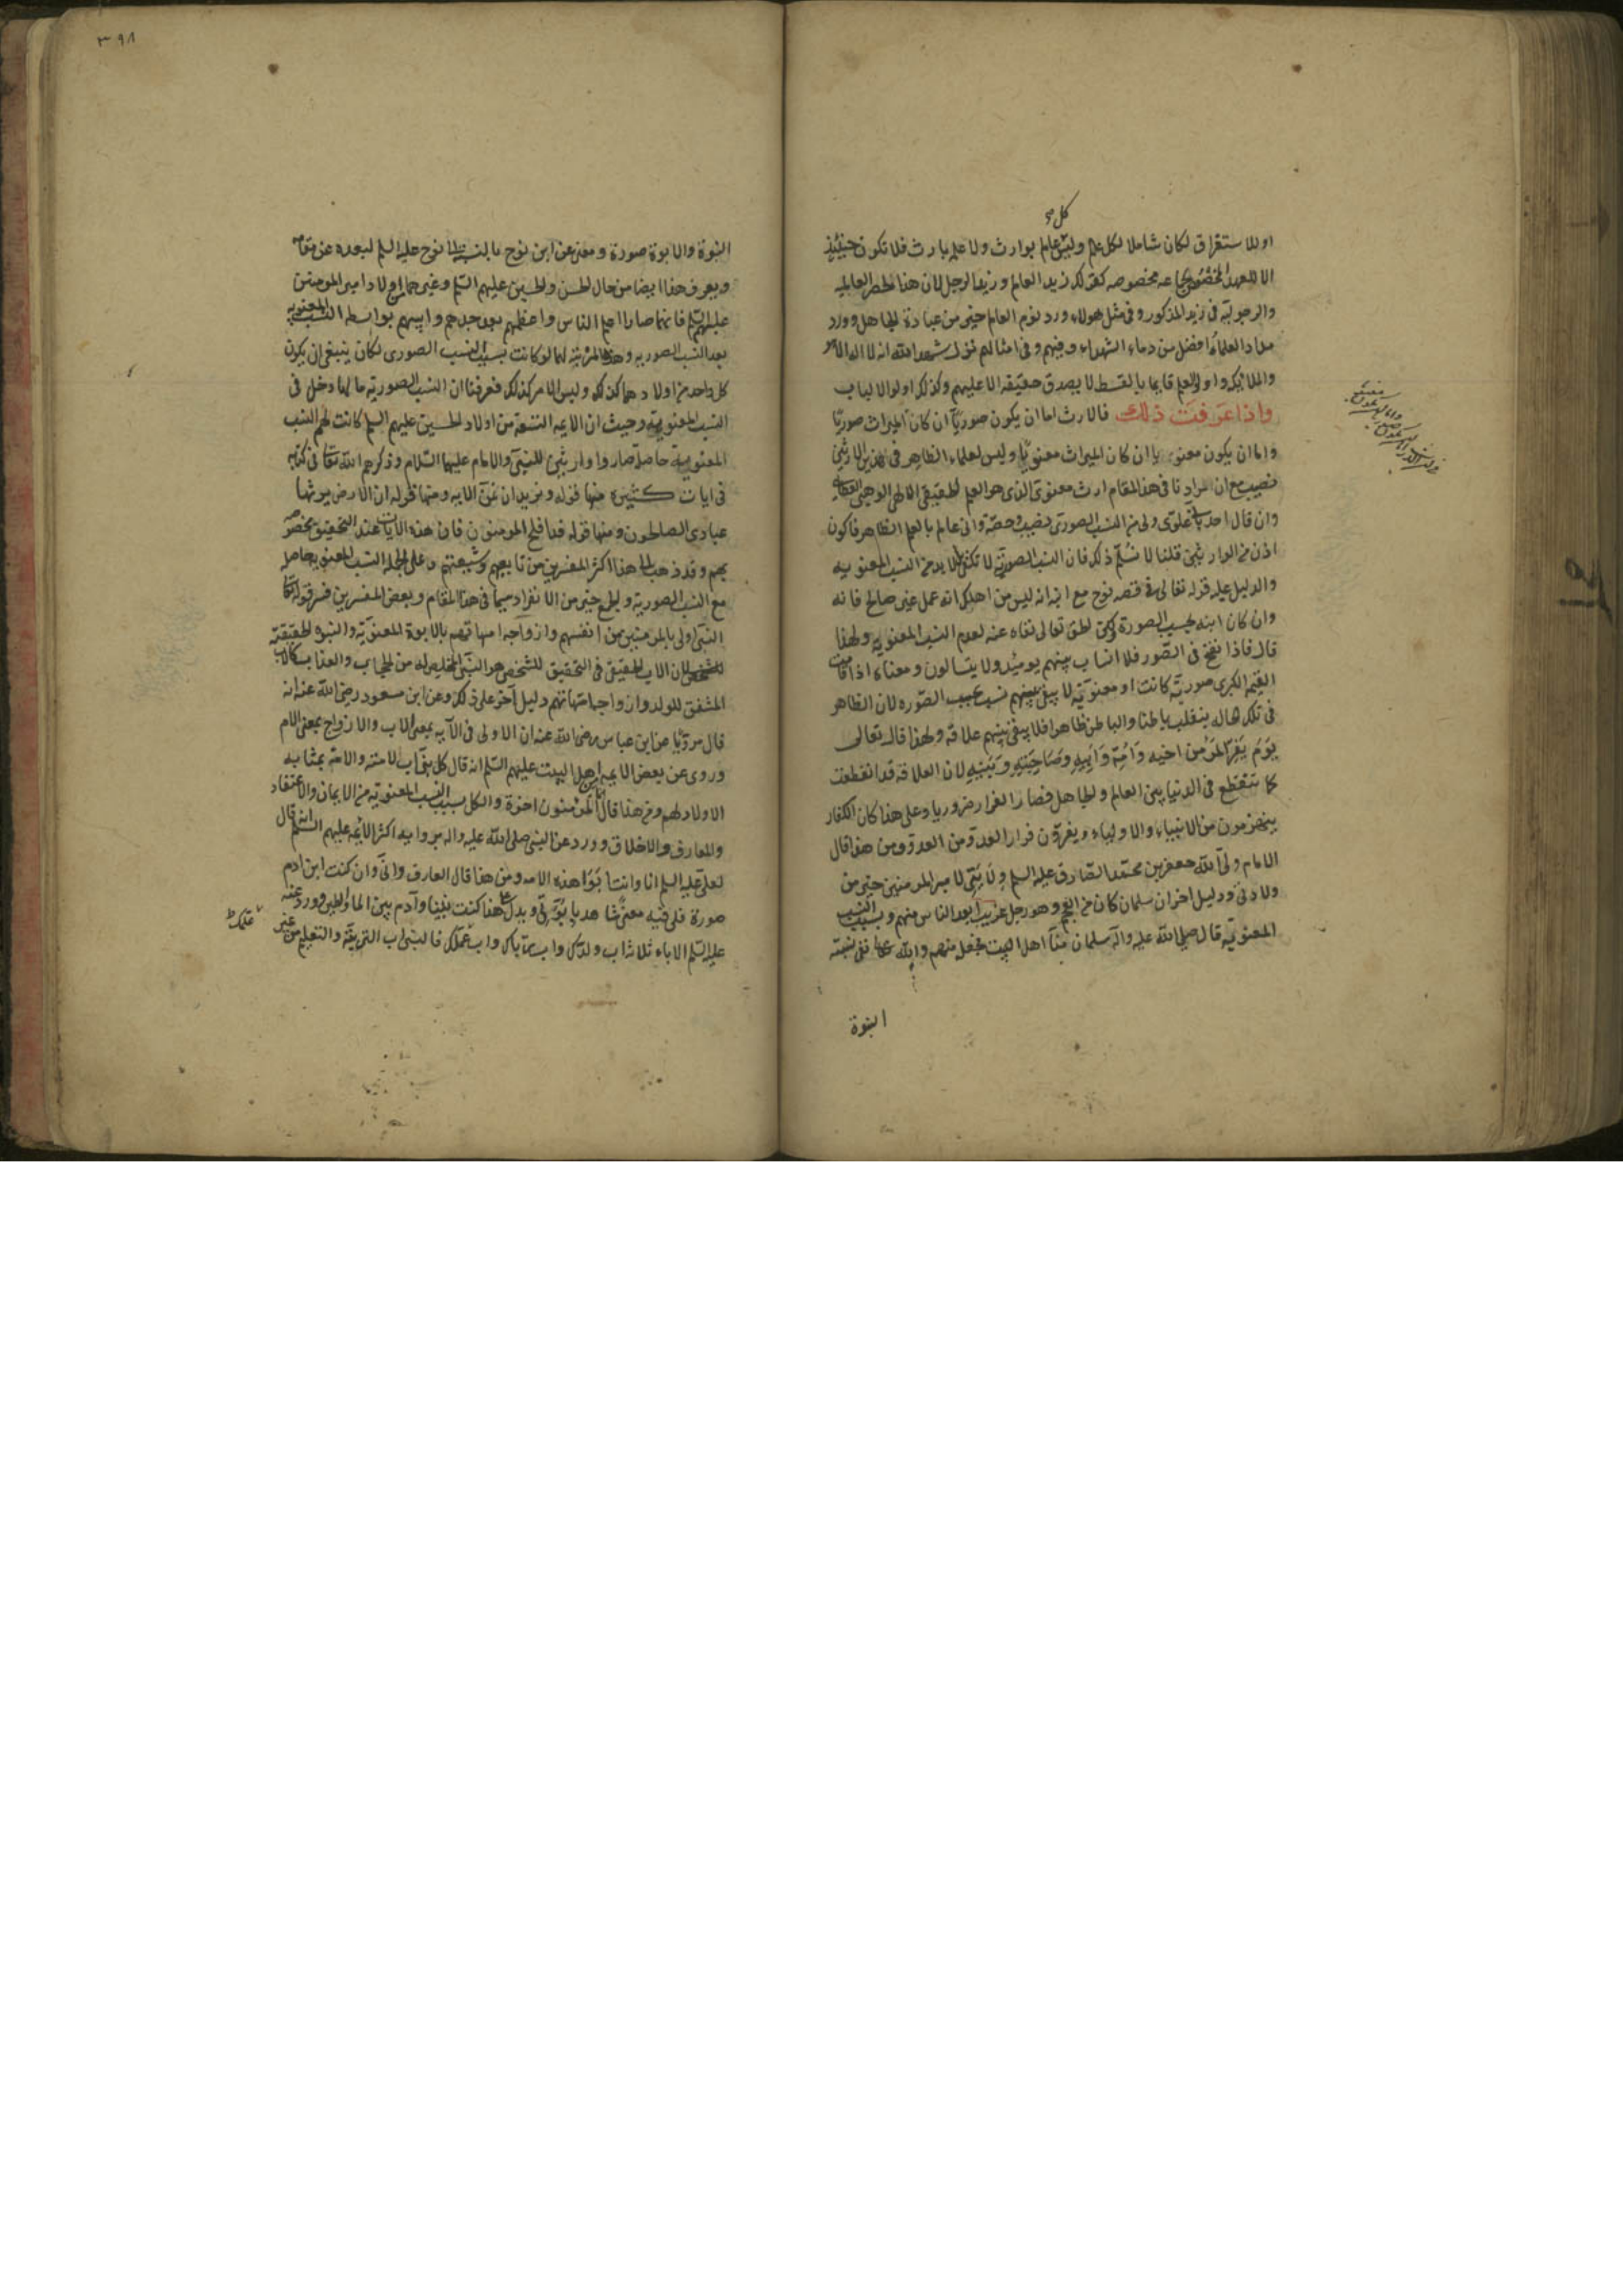 كل
او للاستغراق لكان شاملا لكل علم وليس عالم بوارث ولا علم بارث فلا تكون حينئذ
الا للعهد المخصوص بجماعه مخصوصه كقولك زيد العالم وزيد الرجل لان هذا لحصر العالميه
والرجوليه في زيد المذكور وفي مثل هولاء ورد نوم العالم خير من عبادة الجاهل وورد
مداد العلماء افضل من دماء الشهداء وفيهم وفي امثالهم نزل شهد الله انه لا اله الا هو
والملائكه واولوا العلم قايما بالقسط لا يصدق حقيقه الا عليهم وكذلك اولوا الالباب
واذا عرفت ذلك فالارث اما ان يكون صوريا ان كان الميراث صوريا
واما ان يكون معنويا ان كان الميراث معنويا وليس لعلماء الظاهر في هذين الارثين
نصيب مع ان مرادنا في هذا المقام ارث معنوي الذي هو العلم الحقيقي الالهي
وان قال احد باني علوي ولي من النسب الصوري نصيب وحصة واني عالم بالعلم الظاهر فاكون
اذن من الوارثين قلنا لا نسلم ذلك فان النسب الصورية لا تكفي بل لا بد من النسب المعنويه
والدليل عليه قوله تعالى في قصه نوح مع ابنه انه ليس من اهلك انه عمل غير صالح فانه
وان كان ابنه بحسب الصورة لكن الحق تعالى نفاه عنه لعدم النسب المعنويه ولهذا
قال فاذا نفخ في الصور فلا انساب بينهم يوميد ولا يتسالون ومعناه اذا قامت
القيمه الكبرى صورية كانت او معنوية لا يبقى بينهم نسب بحسب الصوره لان الظاهر
في تلك الحاله ينقلب باطنا والباطن ظاهرا فلا يبقى بينهم علاقه ولهذا قال تعالى
يوم يفر المرء من اخيه وامه وابيه وصاحبته وبنيه لان العلاقه قد انقطعت
كما تنقطع في الدنيا بين العالم والجاهل فصار الفرار ضروريا وعلى هذا كان الكفار
ينهزمون من الانبياء والاولياء ويفرون فرار العدو من العدو ومن هذا قال
الامام ولي الله جعفر بن محمد الصادق عليه السلم ولايتي لامير المومنين خير من
ولادتي ودليل اخر ان سلمان كان من العجم وهو رجل غريب ابعد الناس منهم وبسبب النسب
المعنويه قال صلى الله عليه واله سلمان منا اهل البيت فجعله منهم والله تعالى نفى نسبته
البنوة
٣٩٨
البنوة والابوة صورة ومعنى عن ابن نوح بالنسبة الى نوح عليه السلم لبعده عن مقامه
ويعرف هذا ايضا من حال الحسن والحسين عليهم السلم وغيرهما من اولاد امير المومنين
عليهم السلم فانهما صارا اعلم الناس واعظمهم بعد جدهم وابيهم بواسطه النسب المعنويه
بعد النسب الصوريه وهذه المرتبه لهما لو كانت بسبب النسب الصوري لكان ينبغي ان يكون
كل واحد من اولادهما كذلك وليس الامر كذلك فعرفنا ان النسب الصوريه ما لها دخل في
النسب المعنوية وحيث ان الائمه التسعة من اولاد الحسين عليهم السلم كانت لهم النسب
المعنوية حاصلة صاروا وارثين للنبي والامام عليهما السلام وذكرهم الله تعالى في كتابه
في ايات كثيرة منها قوله ونريد ان نمن الايه ومنها قوله ان الارض يرثها
عبادي الصالحون ومنها قوله قد افلح المومنون فان هذه الايات عند التحقيق مخصوصه
بهم وقد ذهب الى هذا اكثر المفسرين من تابعيهم وشيعتهم وعلى الجمله النسب المعنويه حاصله
مع النسب الصوريه والجمع خير من الانفراد سيما في هذا المقام وبعض المفسرين فسر قوله تعالى
النبي اولى بالمومنين من انفسهم وازواجه امهاتهم بالابوة المعنوية والبنوه الحقيقيه
لان الاب الحقيقي في التحقيق للشخص هو النبي المخلص له من الحجاب والعذاب كالاب
المشفق للولد وازواجه امهاتهم دليل آخر على ذلك وعن ابن مسعود رضي الله عنه انه
قال مرويا عن ابن عباس رضي الله عنه ان الاولى في الآيه بمعنى الاب والازواج بمعنى الام
وروي عن بعض الائمه من اهل البيت عليهم السلم انه قال كل نبي اب لامته والامة بمثابه
الاولاد لهم ومن هذا قال انما المؤمنون اخوة والكل بسبب النسب المعنوية من الايمان والاعتقاد
والمعارف والاخلاق وورد عن النبي صلى الله عليه واله برواية اكثر الائمه عليهم السلم انه قال
لعلي عليه السلم انا وانت ابوا هذه الامه ومن هنا قال العارف واني وان كنت ابن ادم
صورة فلي فيه معنى شاهد بابوتي ويدل على هذا كنت نبيا وآدم بين الماء والطين وورد عنه
عليه السلم الاباء ثلاثه اب ولدك واب رباك واب علمك فالنبي اب التربية والتعليم من غير
علمك